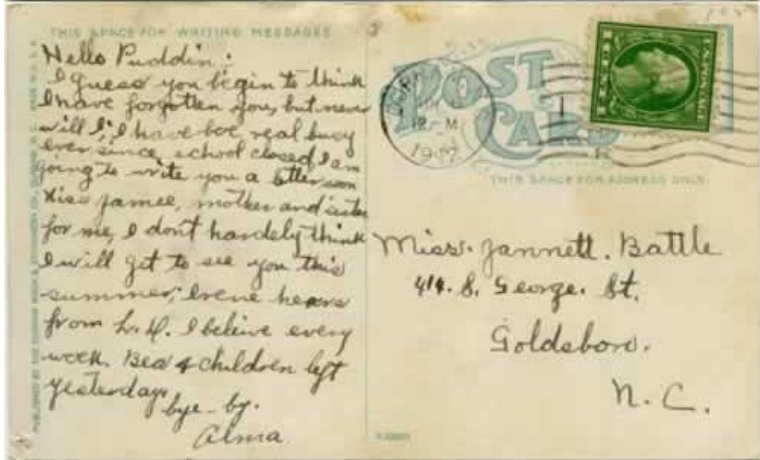 THIS SPACE FOR WRITING MESSAGES
Hello Puddin:
I guess you begin to think
I have forgotten you, but never
will I; I have bee real busy
ever since school closed I am
going to write you a letter soon
Kiss Jamee, mother and sister
for me, I dont hardely think
I will get to see you this
summer; Irene hears
from L.D. I beleive every
week. Bea & children left
yesterday
bye-by.
Alma.
POST
CARD
12 M
1917
THIS SPACE FOR ADDRESS ONLY
Miss. Jannett. Battle
414. S. George. St.
Goldsboro.
N. C.